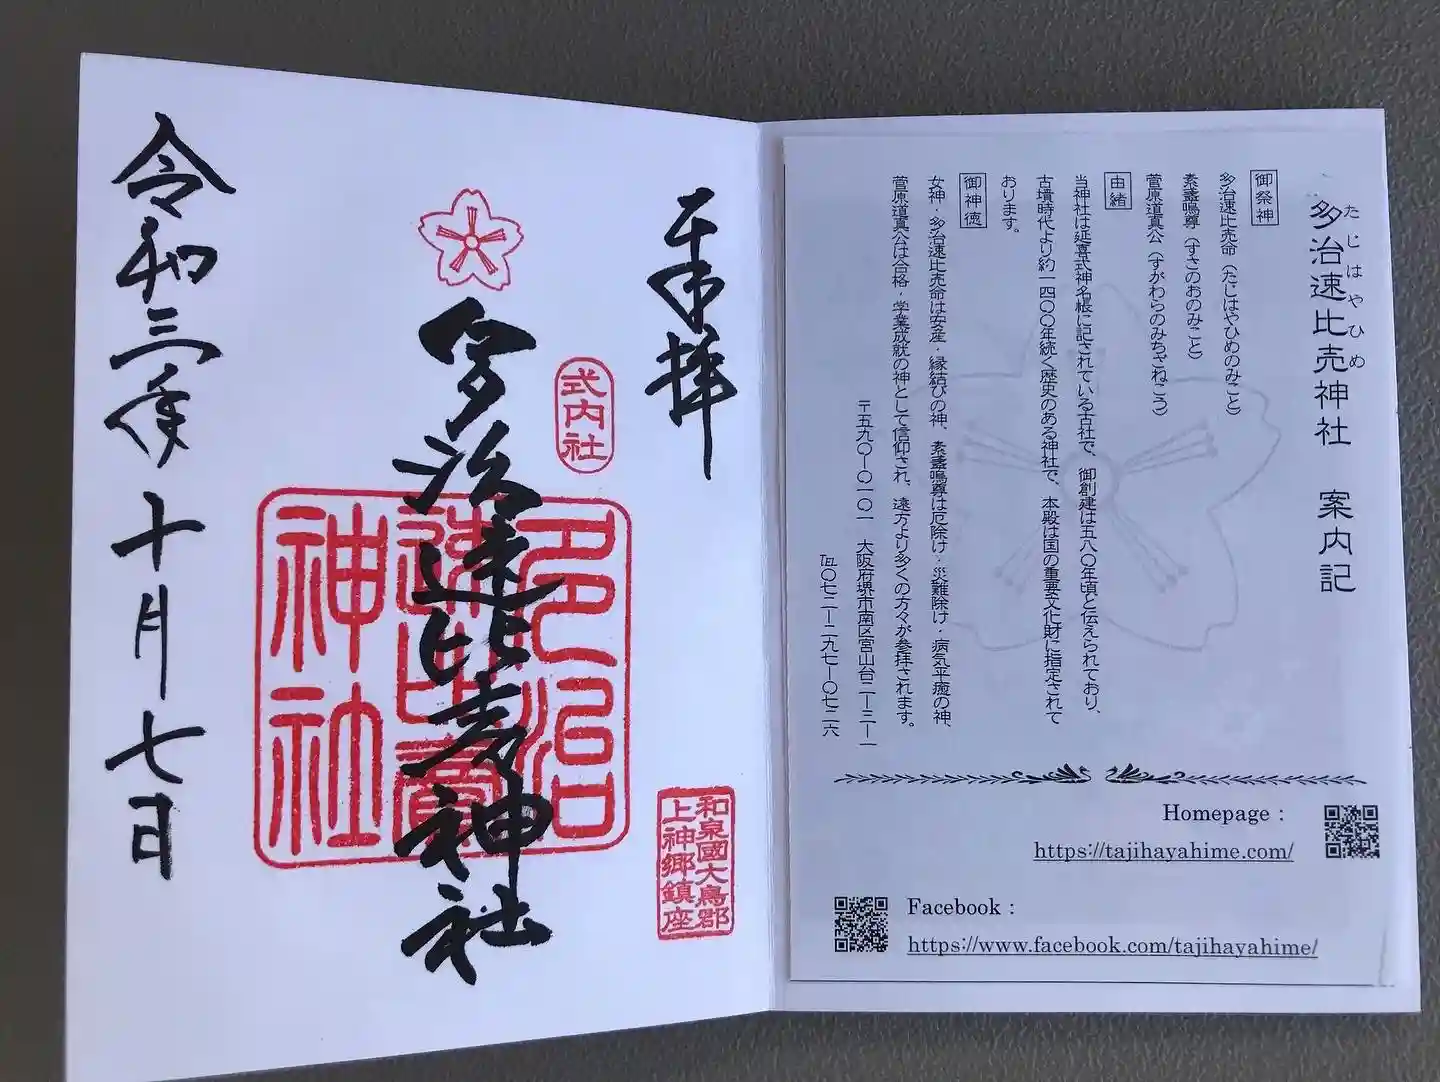 多治速比売神社 案内記
たじはやひめ
御祭神
多治速比売命(たじはやひめのみこと)
素盞嗚尊(すさのおのみこと)
菅原道真公(すがわらのみちざねこう)
由緒
当神社は延喜式神名帳に記されている古社で、御創建は五八〇年頃と伝えられており、
古墳時代より約一四〇〇年続く歴史のある神社で、本殿は国の重要文化財に指定されて
おります。
御神徳
女神・多治速比売命は安産・縁結びの神、素盞嗚尊は厄除け・災難除け・病気平癒の神、
菅原道真公は合格・学業成就の神として信仰され、遠方より多くの方々が参拝されます。
〒五九〇-〇一〇一 大阪府堺市南区宮山台二-三-一
℡〇七二-二九七-〇七二六
Homepage:
https://tajihayahime.com/
Facebook:
https://www.facebook.com/tajihayahime/
奉拝
式内社
多治速比売神社
多治
速比賣
神社
和泉國大鳥郡
上神郷鎮座
令和三年十月七日